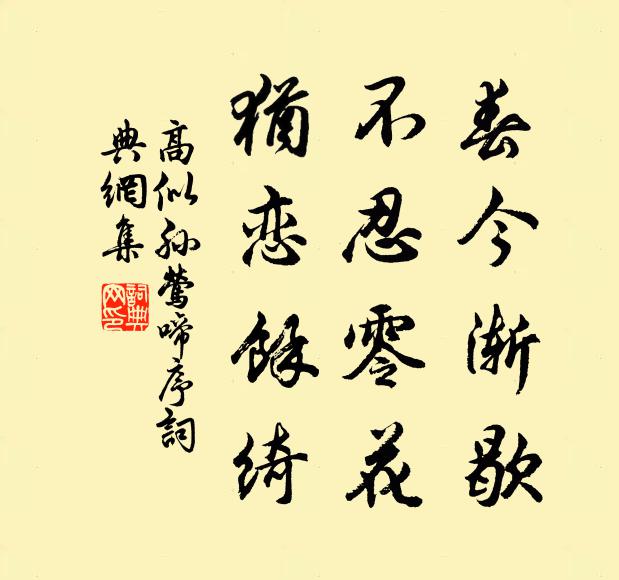 春今漸歇
不忍零花
猶恋餘綺
高似孙鶯啼序詞
典網集
詞典
网印